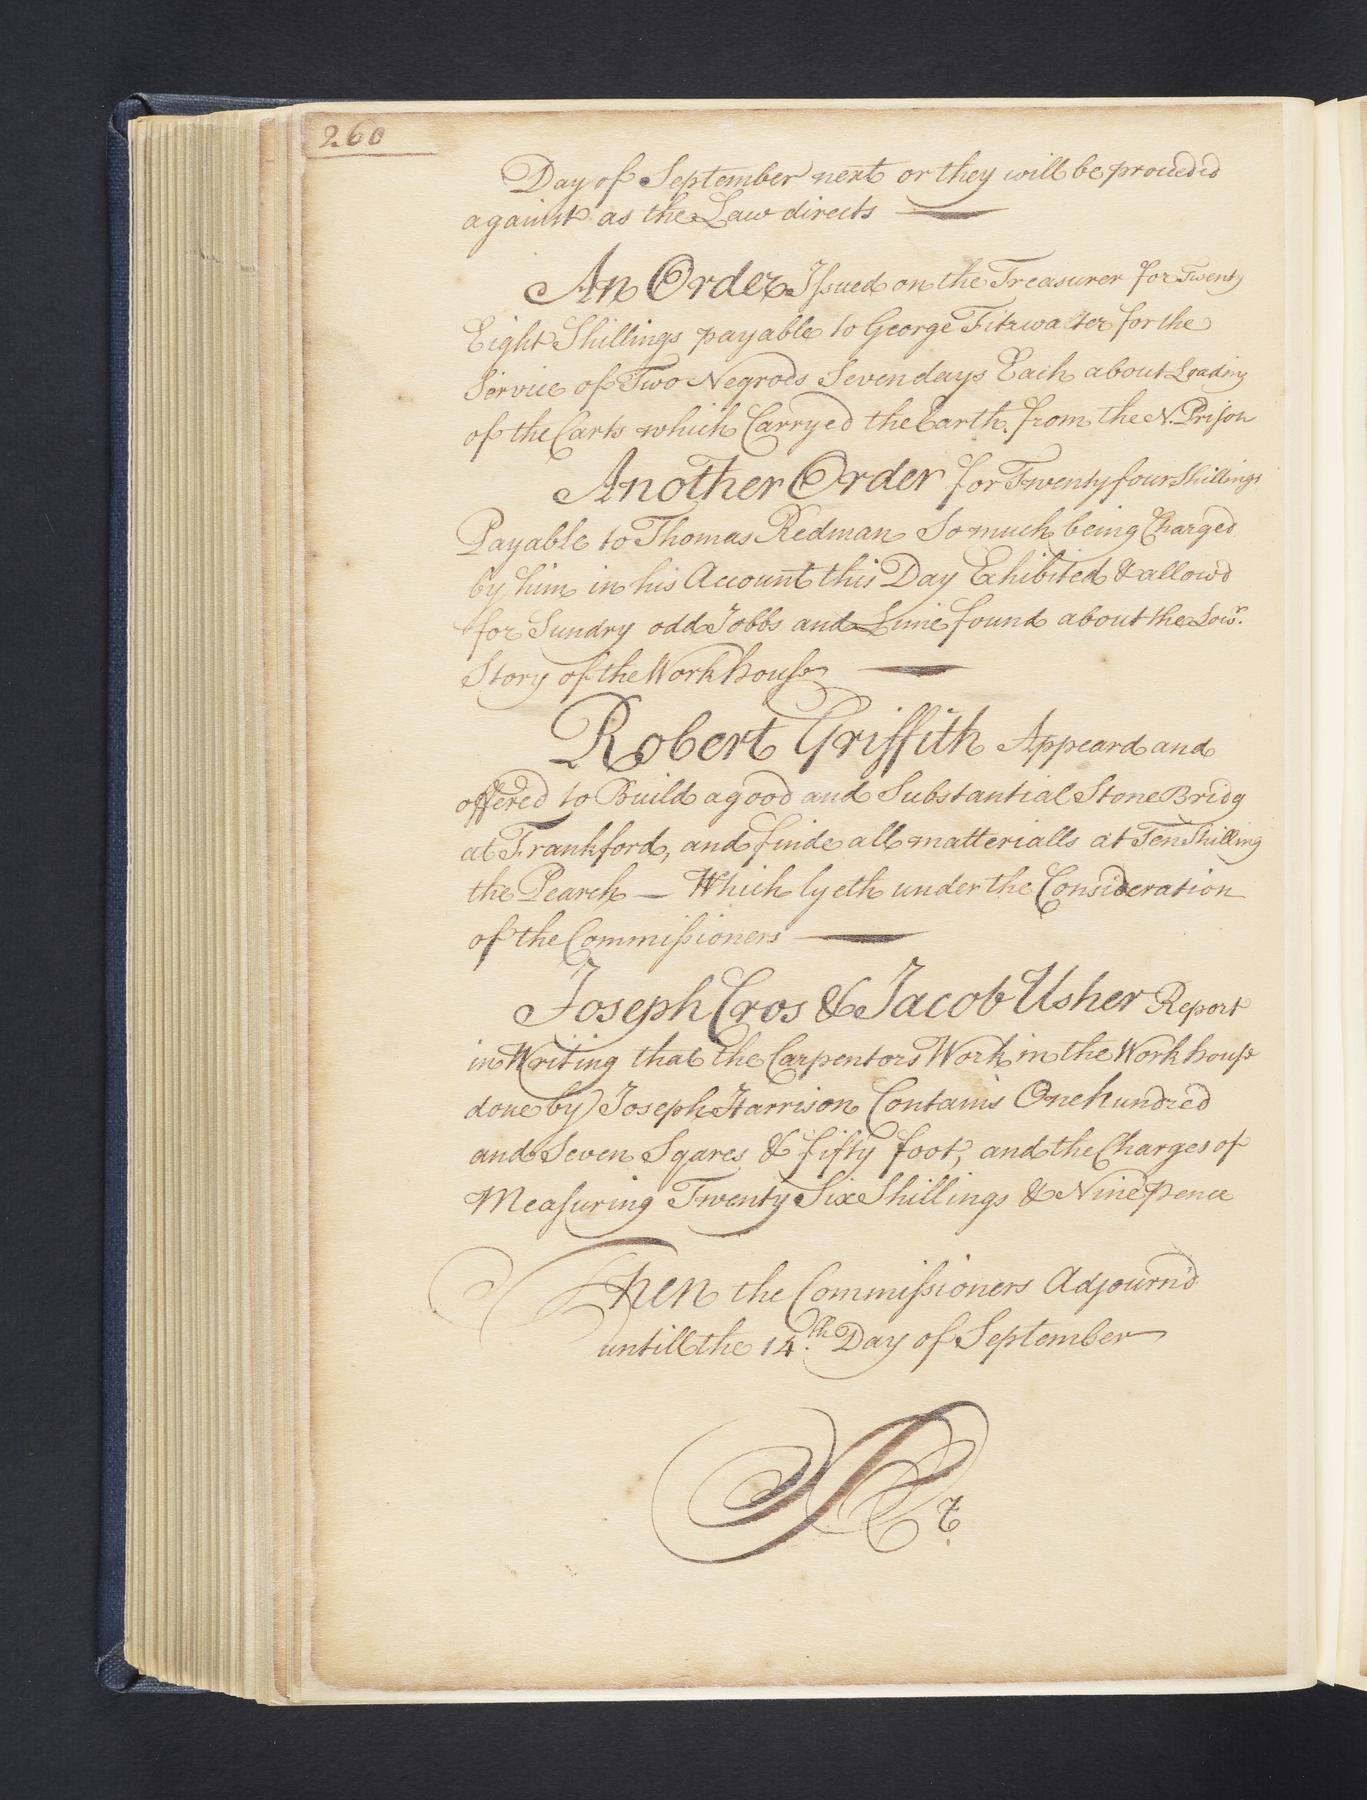 260
Day of September next or they will be proceeded
against as the Law directs
An Order Issued on the Treasurer for Twenty
Eight Shillings payable to George Fitzwater for the
Service of Two Negroes Seven days Each about Loading
of the Carts which Carryed the Earth from the N. Prison
Another Order for Twenty four Shillings
Payable to Thomas Redman So much being Charged
by him in his Account this Day Exhibited & allowd
for Sundry odd Jobbs and Lime found about the Lowr.
Story of the Workhouse
Robert Griffith Appeard and
offered to Build a good and Substantial Stone Bridg
at Frankford, and finde all matterialls at Ten Shilling
the Pearch — Which lyeth under the Consideration
of the Commissioners
Joseph Cros & Jacob Usher Report
in Writing that the Carpentors Work in the Workhouse
done by Joseph Harrison Contains One hundred
and Seven Sqares & fifty foot, and the Charges of
Measuring Twenty Six Shillings & Nine pence
Then the Commissioners Adjourn'd
untill the 14th. Day of September